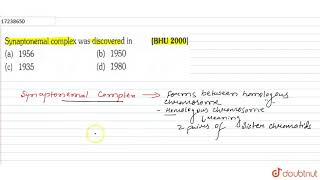 17238650
Synaptonemal complex was discovered in [BHU 2000]
(a) 1956 (b) 1950
(c) 1935 (d) 1980
Synaptonemal Complex → forms between homologous
chromosome
- Homologous chromosome
↓ meaning
2 pairs of sister chromatids
doubtnut